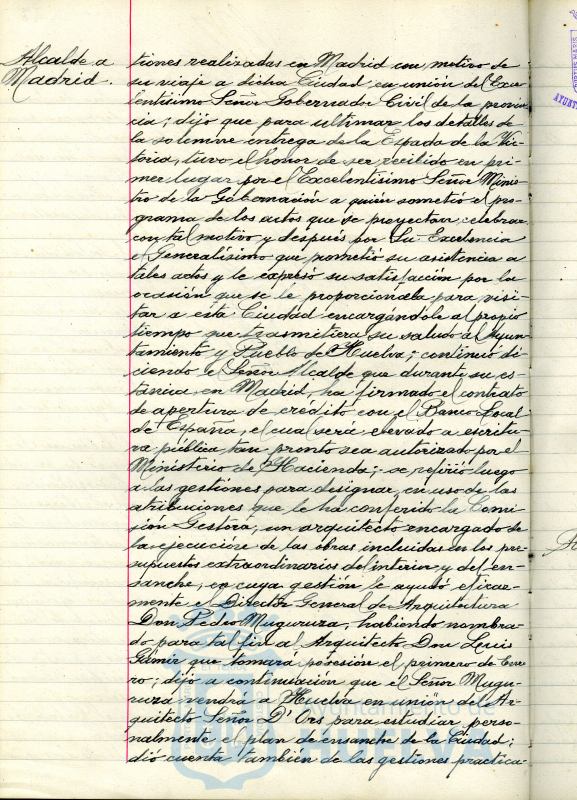 Alcalde a
Madrid.
tiones realizadas en Madrid con motivo de
su viaje a dicha Ciudad en unión del Exce-
lentísimo Señor Gobernador Civil de la provin-
cia; dijo que para ultimar los detalles de
la solemne entrega de la Espada de la Vic-
toria, tuvo el honor de ser recibido en pri-
mer lugar por el Excelentísimo Señor Minis-
tro de la Gobernación a quien sometió el pro-
grama de los actos que se proyectan celebrar
con tal motivo y después por Su Excelencia
el Generalísimo que prometió su asistencia a
tales actos y le expresó su satisfacción por la
ocasión que se le proporcionaba para visi-
tar a esta Ciudad encargándole al propio
tiempo que trasmitiera su saludo al Ayun-
tamiento y Pueblo de Huelva; continuó di-
ciendo el Señor Alcalde que durante su es-
tancia, en Madrid, ha firmado el contrato
de apertura de crédito con el Banco Local
de España, el cual será elevado a escritu-
ra pública, tan pronto sea autorizado por el
Ministerio de Hacienda; se refirió luego
a las gestiones para designar, en uso de las
atribuciones que le ha conferido la Comi-
sión Gestora, un arquitecto encargado de
la ejecución de las obras incluidas en los pre-
supuestos extraordinarios del interior y del en-
sanche, en cuya gestión le ayudó eficaz-
mente el Director General de Arquitectura
Don Pedro Muguruza, habiendo nombra-
do para tal fin al Arquitecto Don Luis
Gámir que tomará posesión el primero de Ene-
ro; dijo a continuación que el Señor Mugu-
ruza vendrá a Huelva en unión del Ar-
quitecto Señor D'Ors para estudiar perso-
nalmente el plan de ensanche de la Ciudad;
dió cuenta también de las gestiones practica-
Ayuntamiento de
HUELVA